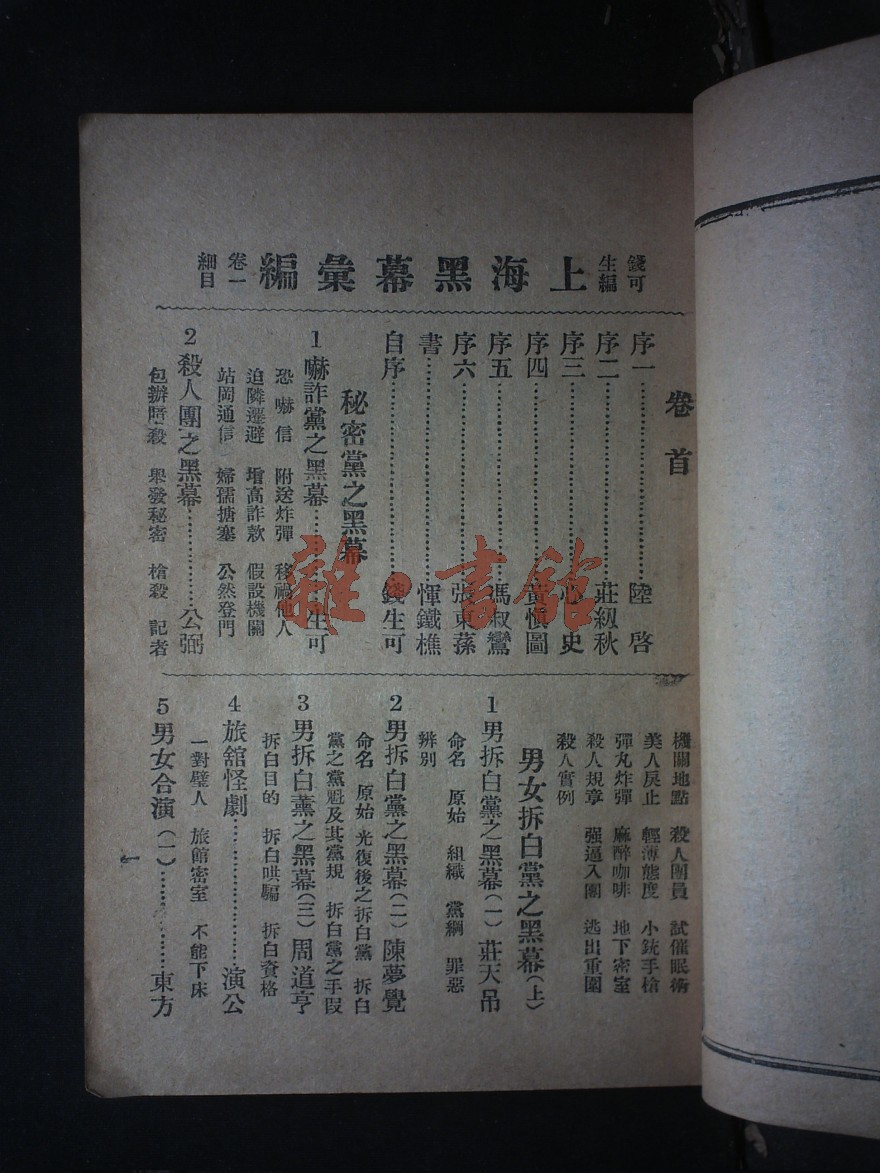 錢可
生編
上海黑幕彙編
卷一
細目
卷首
序一……陸啓
序二……莊紉秋
序三……心史
序四……黃愼圖
序五……馮叔鸞
序六……張東蓀
書……惲鐵樵
自序……錢生可
秘密黨之黑幕
1 嚇詐黨之黑幕……生可
恐嚇信 附送炸彈 移禍他人
迫隣遷避 增高詐款 假設機關
站岡通信 婦孺搪塞 公然登門
2 殺人團之黑幕……公弼
包辦暗殺 舉發秘密 槍殺記者
機關地點 殺人團員 試催眠術
美人戾止 輕薄態度 小銃手槍
彈丸炸彈 麻醉咖啡 地下密室
殺人規章 强逼入團 逃出重圍
殺人實例
男女拆白黨之黑幕(上)
1 男拆白黨之黑幕(一) 莊天吊
命名 原始 組織 黨綱 罪惡
辨別
2 男拆白黨之黑幕(二) 陳夢覺
命名 原始 光復後之拆白黨 拆白
黨之黨魁及其黨規 拆白黨之手段
3 男拆白黨之黑幕(三) 周道亨
拆白目的 拆白哄騙 拆白資格
4 旅舘怪劇……演公
一對璧人 旅館密室 不能下床
5 男女合演(一)……東方
一
雜·書館